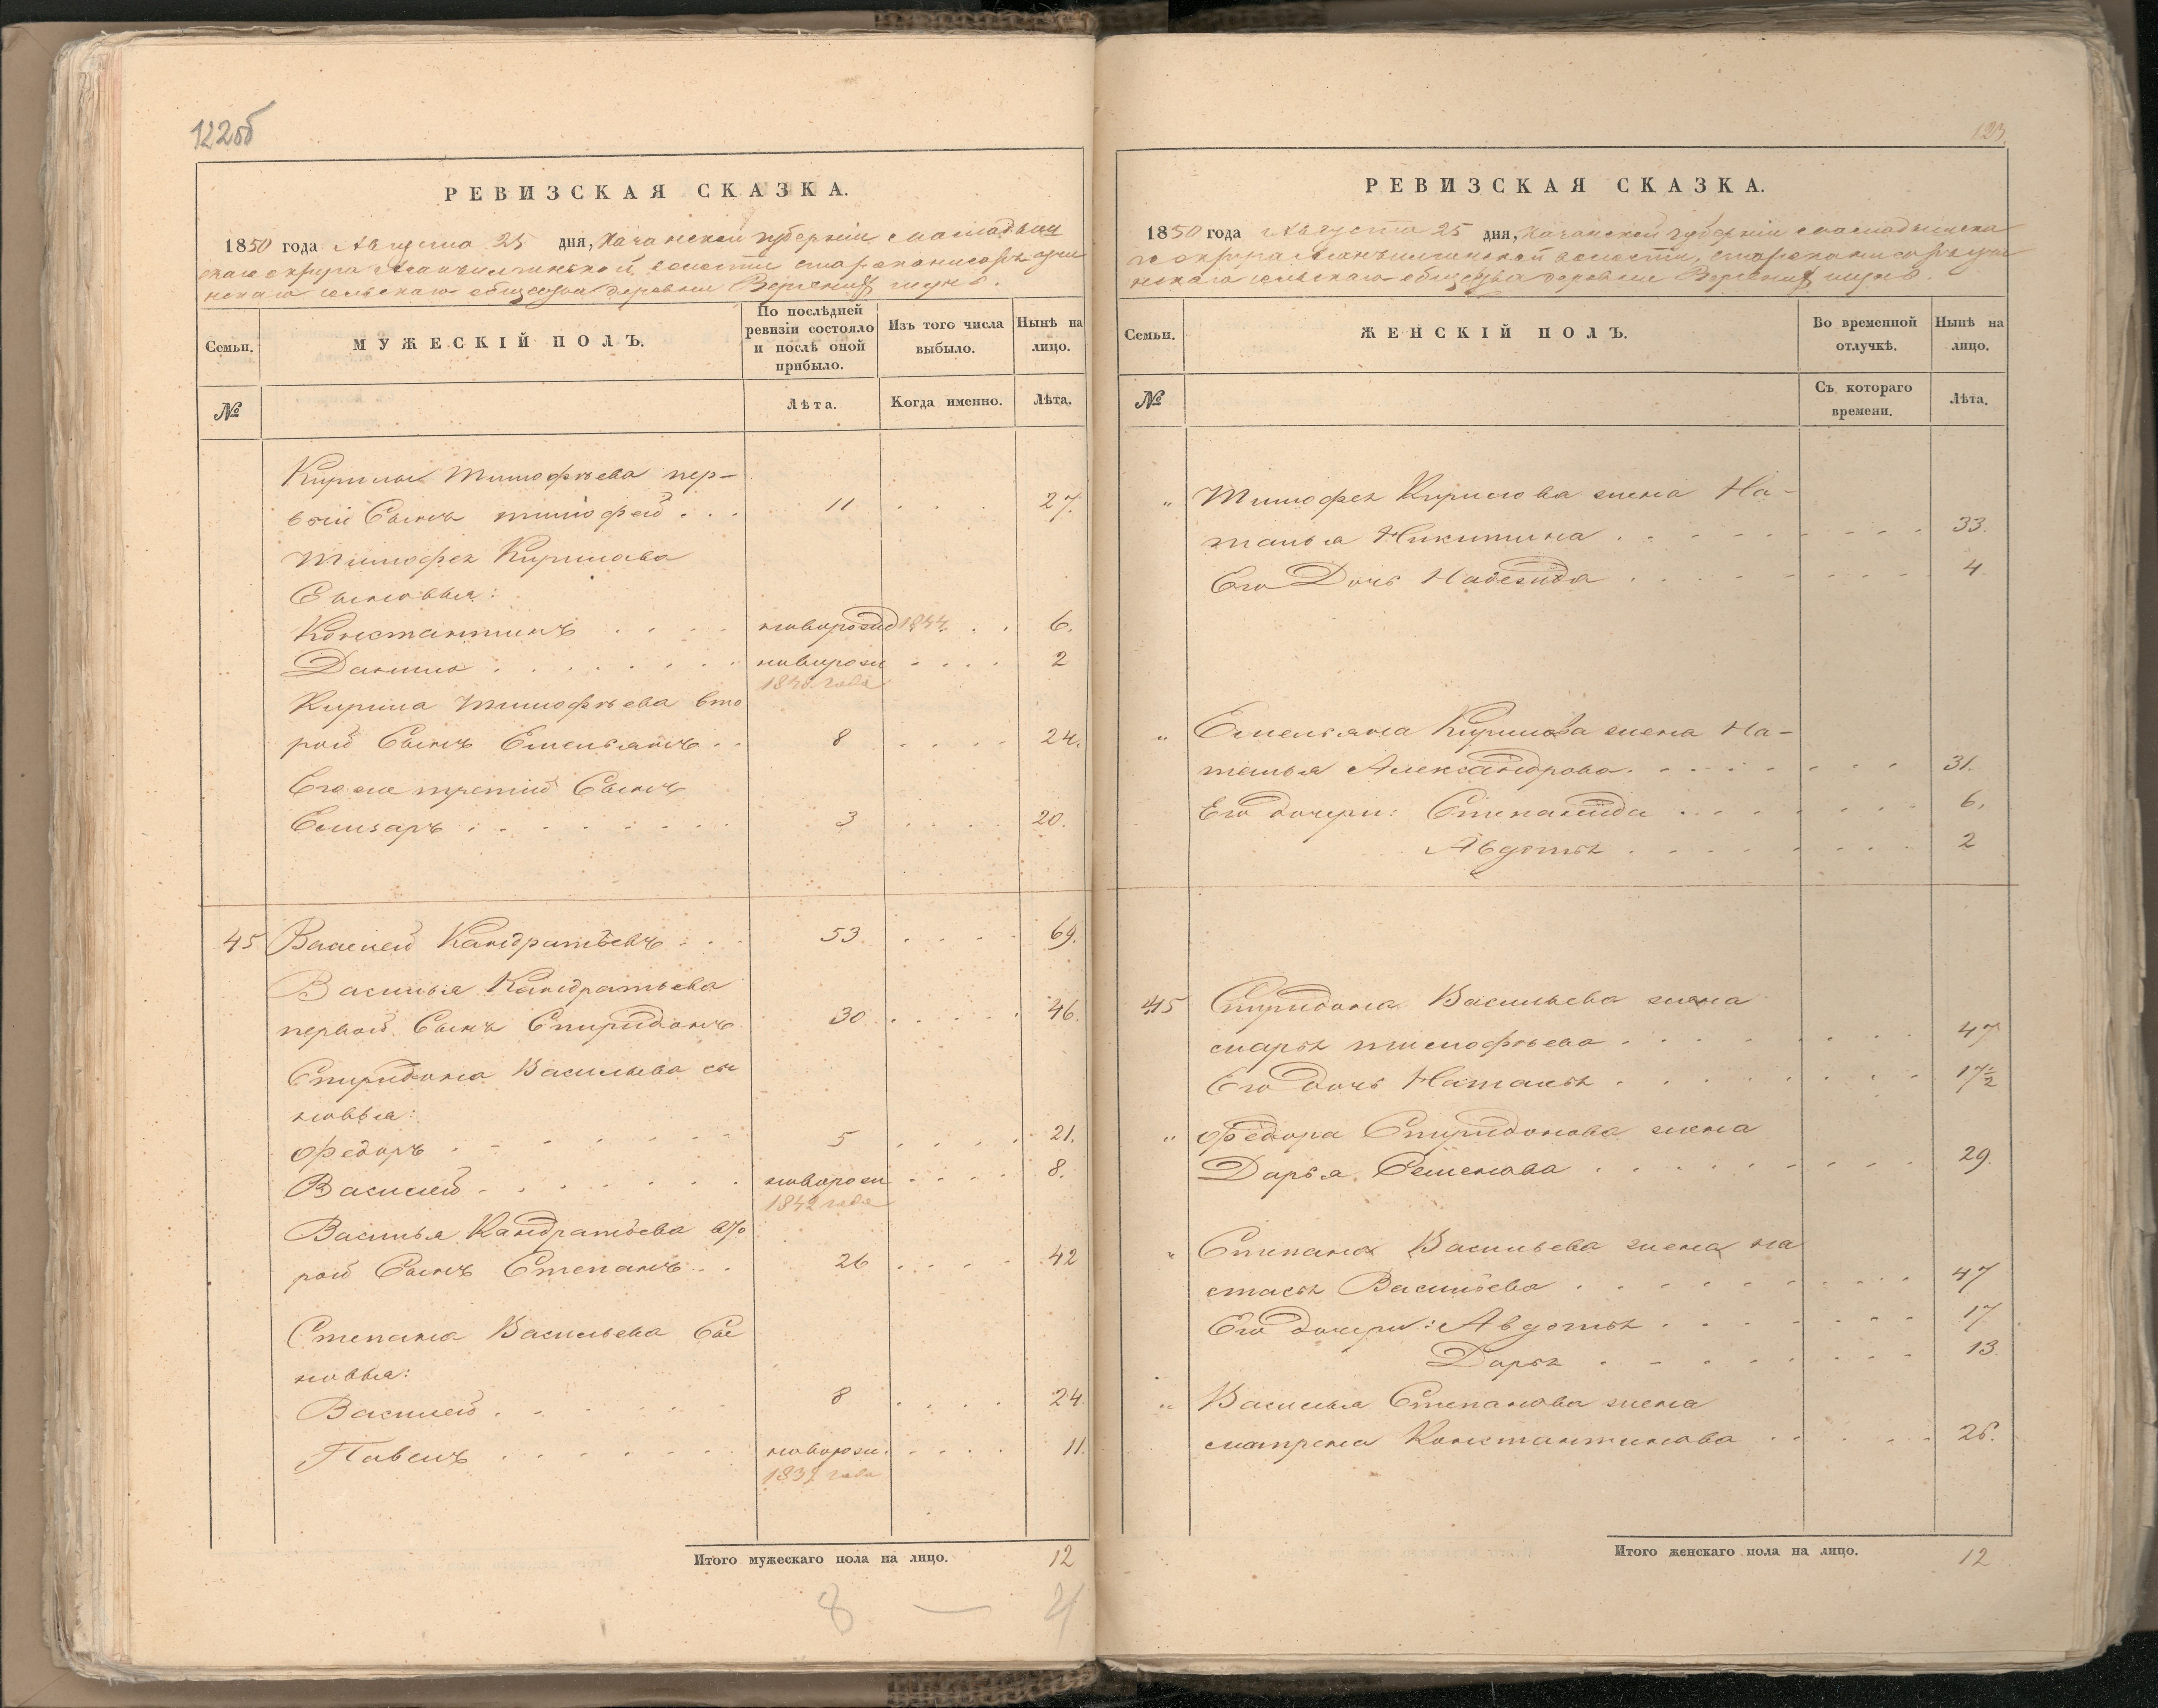 122об
РЕВИЗСКАЯ СКАЗКА.
1850 года Августа 25 дня, Казанской губерніи Мамадыш
скаго округа волости
нскаго сельскаго общества деревни
Семьи.
МУЖЕСКІЙ ПОЛЪ.
По послѣдней ревизіи состояло и послѣ оной прибыло.
Изъ того числа выбыло.
Нынѣ на лицо.
№
Лѣта.
Когда именно.
Лѣта.
Кирилы Тимофѣева пер-
вой Сынъ тимофей . . . 11 27.
Тимофея Кирилова
Сыновья:
Константинъ новорожд 1844 6.
Данило новорож 2
1848 года
Кирила Тимофѣева вто
рой Сынъ Емельянъ 8 24.
Его же третий Сынъ
Елизаръ 3 20.
45 Василей Кандратьевъ 53. 69.
Василья Кандратьева
первой Сынъ Спиридонъ 30 46.
Спиридона Васильева сы
новья:
Федоръ 5 21.
Василей новорож 8.
1842 года
Василья Кандратьева вто
рой Сынъ Степанъ 26 42
Степана Васильева Сы
новья:
Василей 8 24.
Павелъ новорож. 11.
1839 года
Итого мужескаго пола на лицо. 12
8 — 4
123
РЕВИЗСКАЯ СКАЗКА.
1850 года Августа 25 дня, Казанской губерніи Мамадышска
го округа волости,
нскаго сельскаго общества деревни
Семьи.
ЖЕНСКІЙ ПОЛЪ.
Во временной отлучкѣ.
Нынѣ на лицо.
№
Съ котораго времени.
Лѣта.
„ Тимофея Кирилова жена На-
талья Никитина 33.
Его Дочь Надежда 4
„ Емельяна Кирилова жена На-
талья Александрова 31.
Его дочери: Степанида 6.
Авдотья 2
45 Спиридона Васильева жена
марья тимофѣева 47
Его Дочь Наталья 17½
„ Федора Спиридонова жена
Дарья Семенова 29.
„ Степана Васильева жена на
стасья Васильева 47
Его дочери: Авдотья 17
Дарья 13
„ Василья Степанова жена
матрена Константинова 26.
Итого женскаго пола на лицо. 12